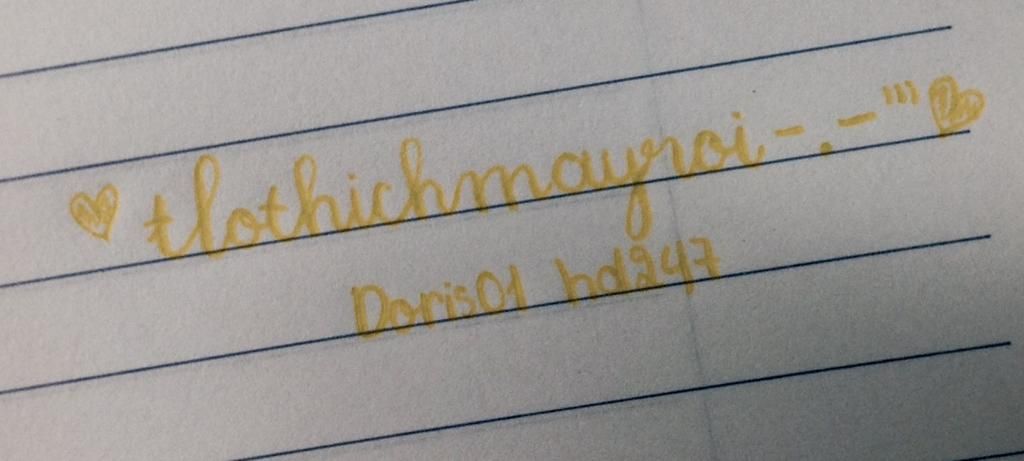 ♥ tlothichmayroi -.-''' ♥
Doris01 hd247